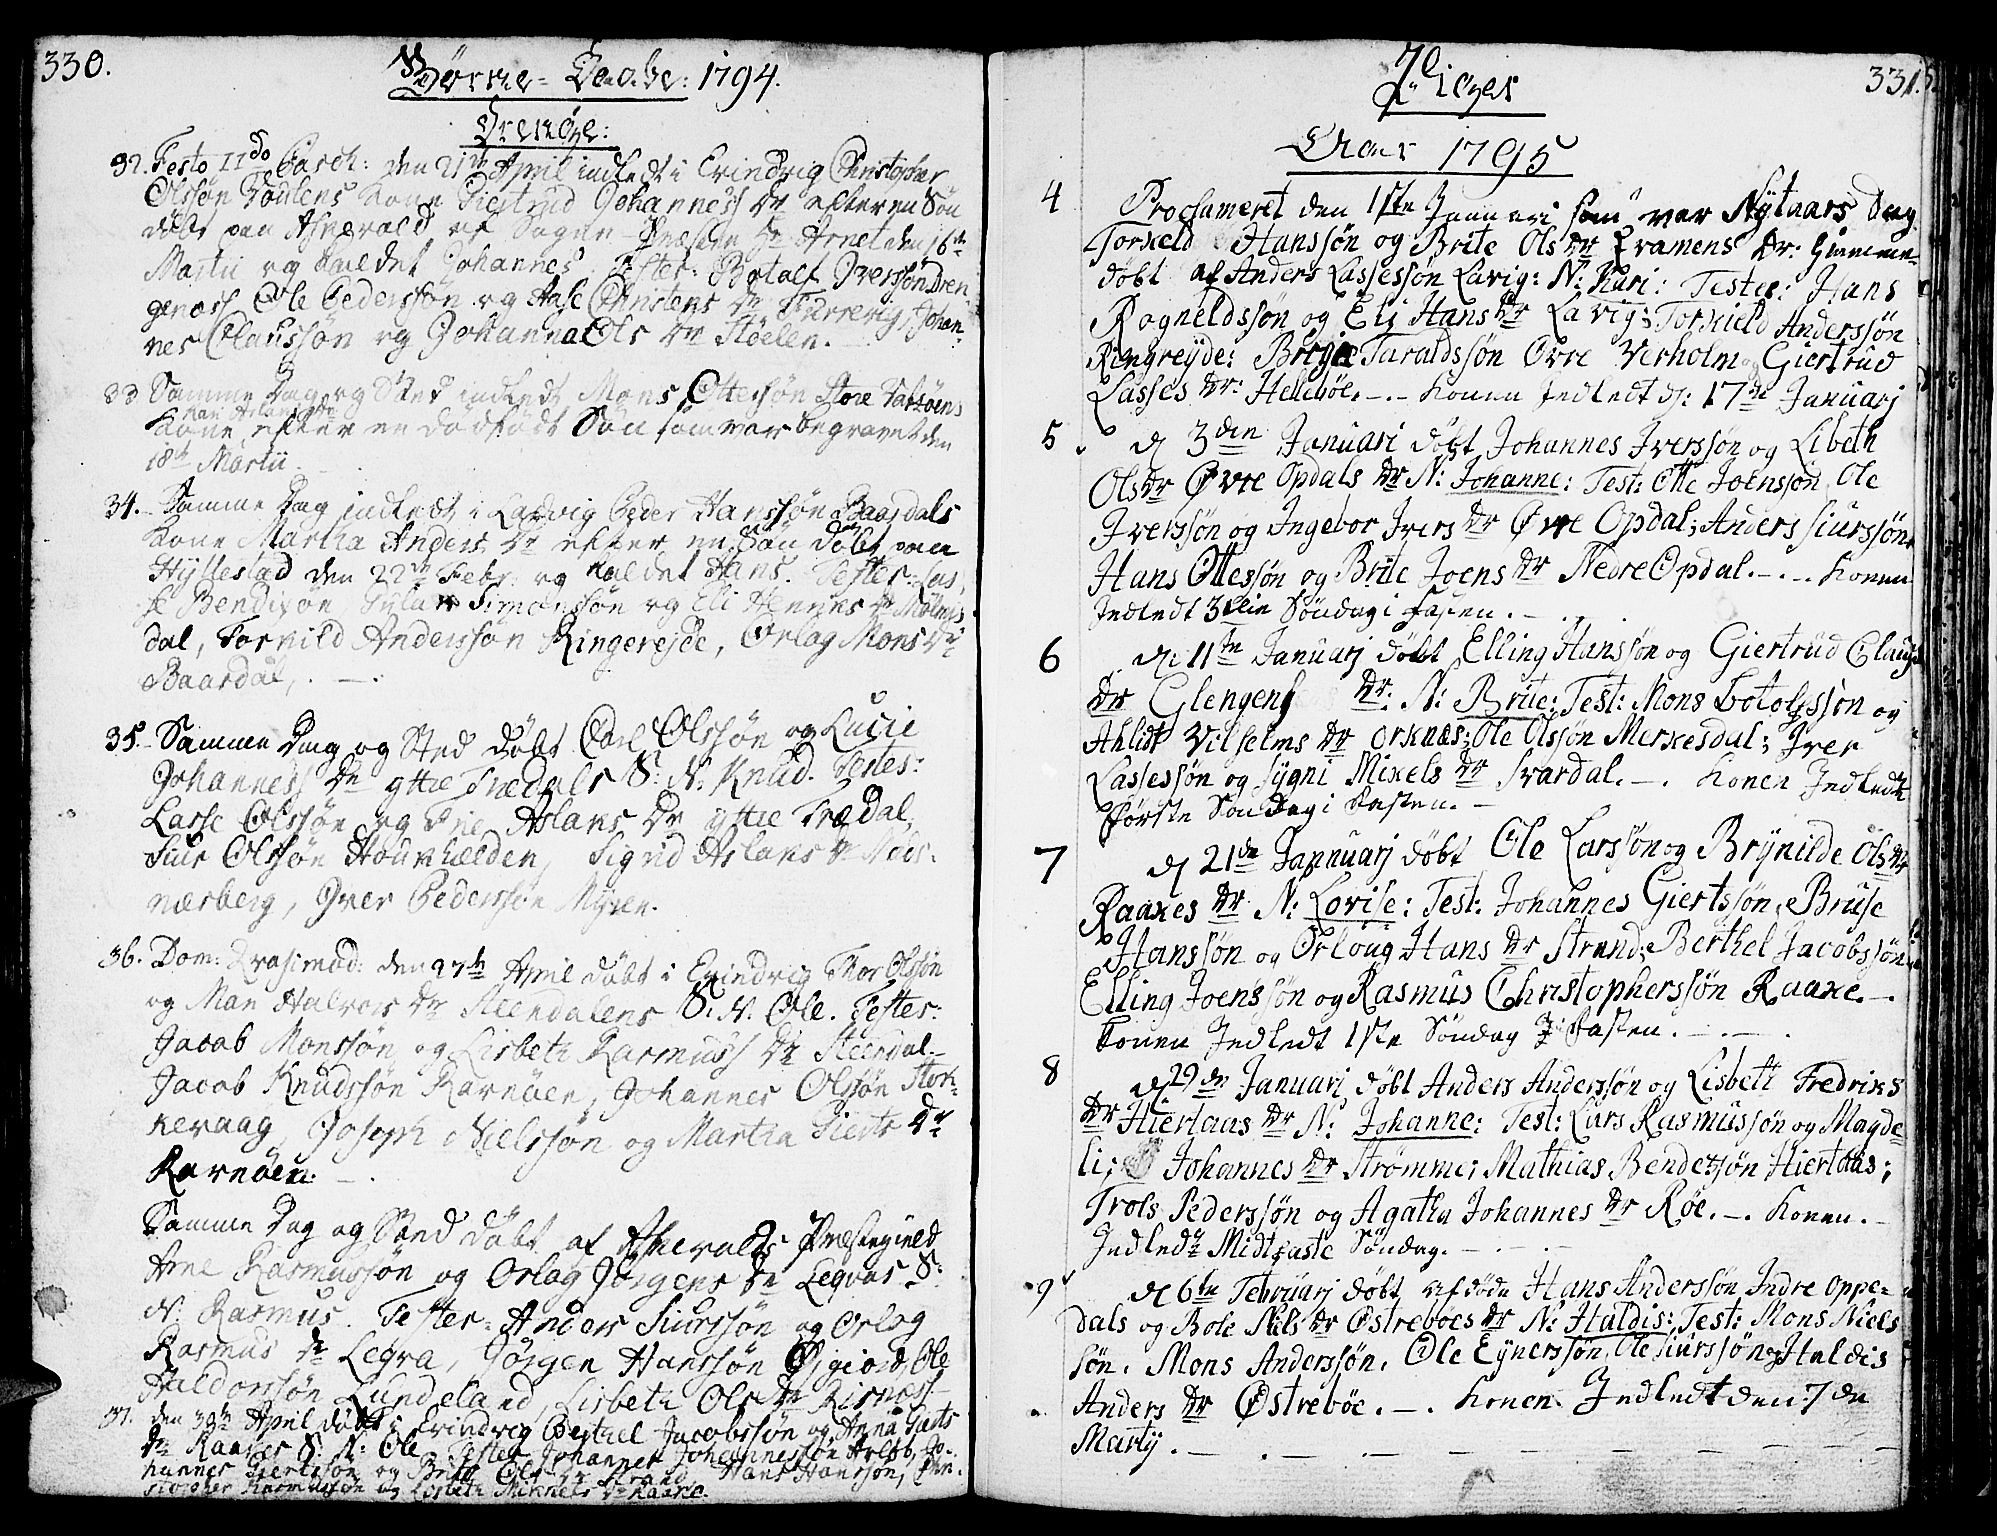 330.
Børne-Daabe: 1794.
Drenge:
32. Festo IIdo Pasch: den 21de April indledt i Evindvig Christopher
Olssøn Kone Giertrud Johanness Dr efter en Søn
døbt paa Askevold af Sogne-Præsten Hr Arnet den 16de
Martii og kaldet Johannes. Tester: Botolf Iverssøn Dren-
genæss Ole Pederssøn og Aase Christens Dr Furrevig, Johan-
nes Claussøn og Johanna Ols Dr Støelen.
33 Samme Dag og Sted indledt Mons Ottessøn Store
Kone efter en dødfødt Søn som var begravet den
18de Martii
34. Samme Dag indledt i Ladvig Peder Hanssøn Baardals
Kone Martha Anders Dr efter en Søn døbt paa
Hyllestad den 22de Febr: og kaldet Hans. Tester: Las-
se Bendixøn, Simonssøn og Eli Hennes Dr
dal, Torkild Anderssøn Ringereide, Orlog Mons Dr
Baardal.
35. Samme Dag og Sted døbt Carl Olssøn og Lucie
Johanness Dr yttre Trædals S: N: Knud. Testes:
Lasse Olssøn og Aslaks Dr yttre Trædal,
Siur Olssøn Sigrid Aslaks Dr
næsberg, Iver Pederssøn Myren.
36. Dom: Qvasimod: den 27de April døbt i Evindvig Thor Olssøn
og Mari Halvors Dr Steendalens S: N: Ole. Tester:
Jacob Monssøn og Lisbeth Rasmuss Dr Steendal.
Jacob Knudssøn Ravnøen, Johannes Olssøn Stok-
kevaag, Joseph Nielssøn og Martha Gierts Dr
Ravnøen.
Samme Dag og Sted døbt af Askevolds Præstegield
Arne Rasmussøn og Orlog Jørgens Dr Leqvas S:
N: Rasmus. Tester: Anders Siurssøn og Orlog
Rasmus Dr Leqva, Jørgen Hanssøn Ole
Haldorssøn Lundeland, Lisbeth Ols Dr Risnæss
37. den 30de April døbt i Evindvig Berthel Jacobssøn og Anna Gierts
Dr Raakes S: N: Ole. Tester Johannes Johannessøn Jo-
hannes Giertssøn og Brite Ols Dr Strand, Hans Hanssøn, Chri-
stopher Rasmussøn og Lisbeth Mikkels Dr Raake.
Piger
331.
Anno 1795
4 Proclameret den 1ste Januari som var Nytaars Dag
Torkeld Hanssøn og Brite Ols Dr Qvamens Dr: Hiemme-
døbt af Anders Lassessøn Lavig: N: Kari: Tester: Hans
Rogneldssøn og Eli Hans Dr Lavig: Torkield Anderssøn
Ringreyde: Taraldssøn Øvre Verholm og Giertrud
Lasses Dr: Hellebøe.-.- Konen Indledt d: 17de Januarj
5 d 3den Januari døbt Johannes Iverssøn og Libeth
Ols Dr Øvre Opdals Dr N: Johanne: Test: Otte Joenssøn, Ole
Iverssøn og Ingebor Ivers Dr Øvre Opdal; Anders Siurssøn,
Hans Ottessøn og Brite Joens Dr Nedre Opdal.-.- Konen
Indledt 3die Søndag i Fasten.-
6 d: 11te Januarj døbt Elling Hanssøn og Giertrud Claus
Dr Glengens Dr: N: Brite: Test: Mons Botolfssøn og
Ahlidt Vilhelms Dr Orknæs; Ole Olssøn Merkesdal; Iver
Lassessøn og Sygni Mikels Dr Svardal.-. Konen Indledt
Første Søndag i Fasten.-
7 d 21de Januarj døbt Ole Larssøn og Brynilde Ols Dr
Raakes Dr. N: Lovise: Test: Johannes Giertssøn, Bruse
Hanssøn og Orloug Hans Dr Strand; Berthel Jacobssøn
Elling Joenssøn og Rasmus Christopherssøn Raake.-.
Konen Indledt 1ste Søndag i Fasten.-.-.
8 d 29de Januari døbt Anders Anderssøn og Lisbeth Fredriks
Dr Hiertaas Dr N: Johanne: Test: Lars Rasmussøn og Magde-
li; Johannes Dr Strømme; Mathias Bendexsøn Hiertaas;
Trols Pederssøn og Agatha Johannes Dr Røe.-. Konen.-
Indledt Midfaste Søndag.-.-.-
9 d 6te Februarj døbt af døde Hans Anderssøn Indre Oppe-
dals og Bole Niels Dr Østrebøes Dr N: Haldis: Test: Mons Niels
søn. Mons Anderssøn. Ole Eynerssøn, Ole Siurssøn og Haldis
Anders Dr Østrebøe.-. Konen Indledt den 7de
Martij.-